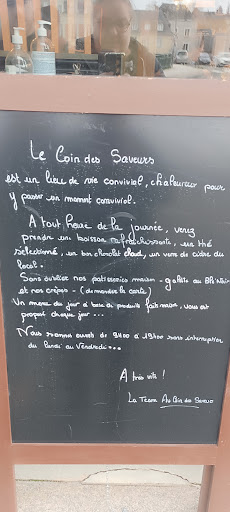 Le Coin des Saveurs
est un lieu de vie convivial, chaleureux pour
y passer un moment convivial.
A tout heure de la journée, venez
prendre un boisson rafraîchissante, un thé
sélectionné, un bon chocolat chaud, un verre de cidre du
local.
Sans oublier nos patisseries maison - galette au Blé Noir
et nos crêpes - (demandez la carte)
Un menu du jour à base de produits fait maison, vous est
proposé chaque jour ...
Nous sommes ouvert de 9H00 à 19H00 sans interruption
du Lundi au Vendredi ...
A très vite !
La Team Au Coin des Saveurs